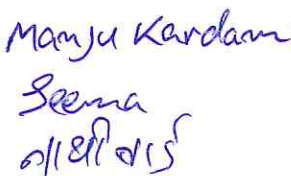 Manju Kardam
Seema